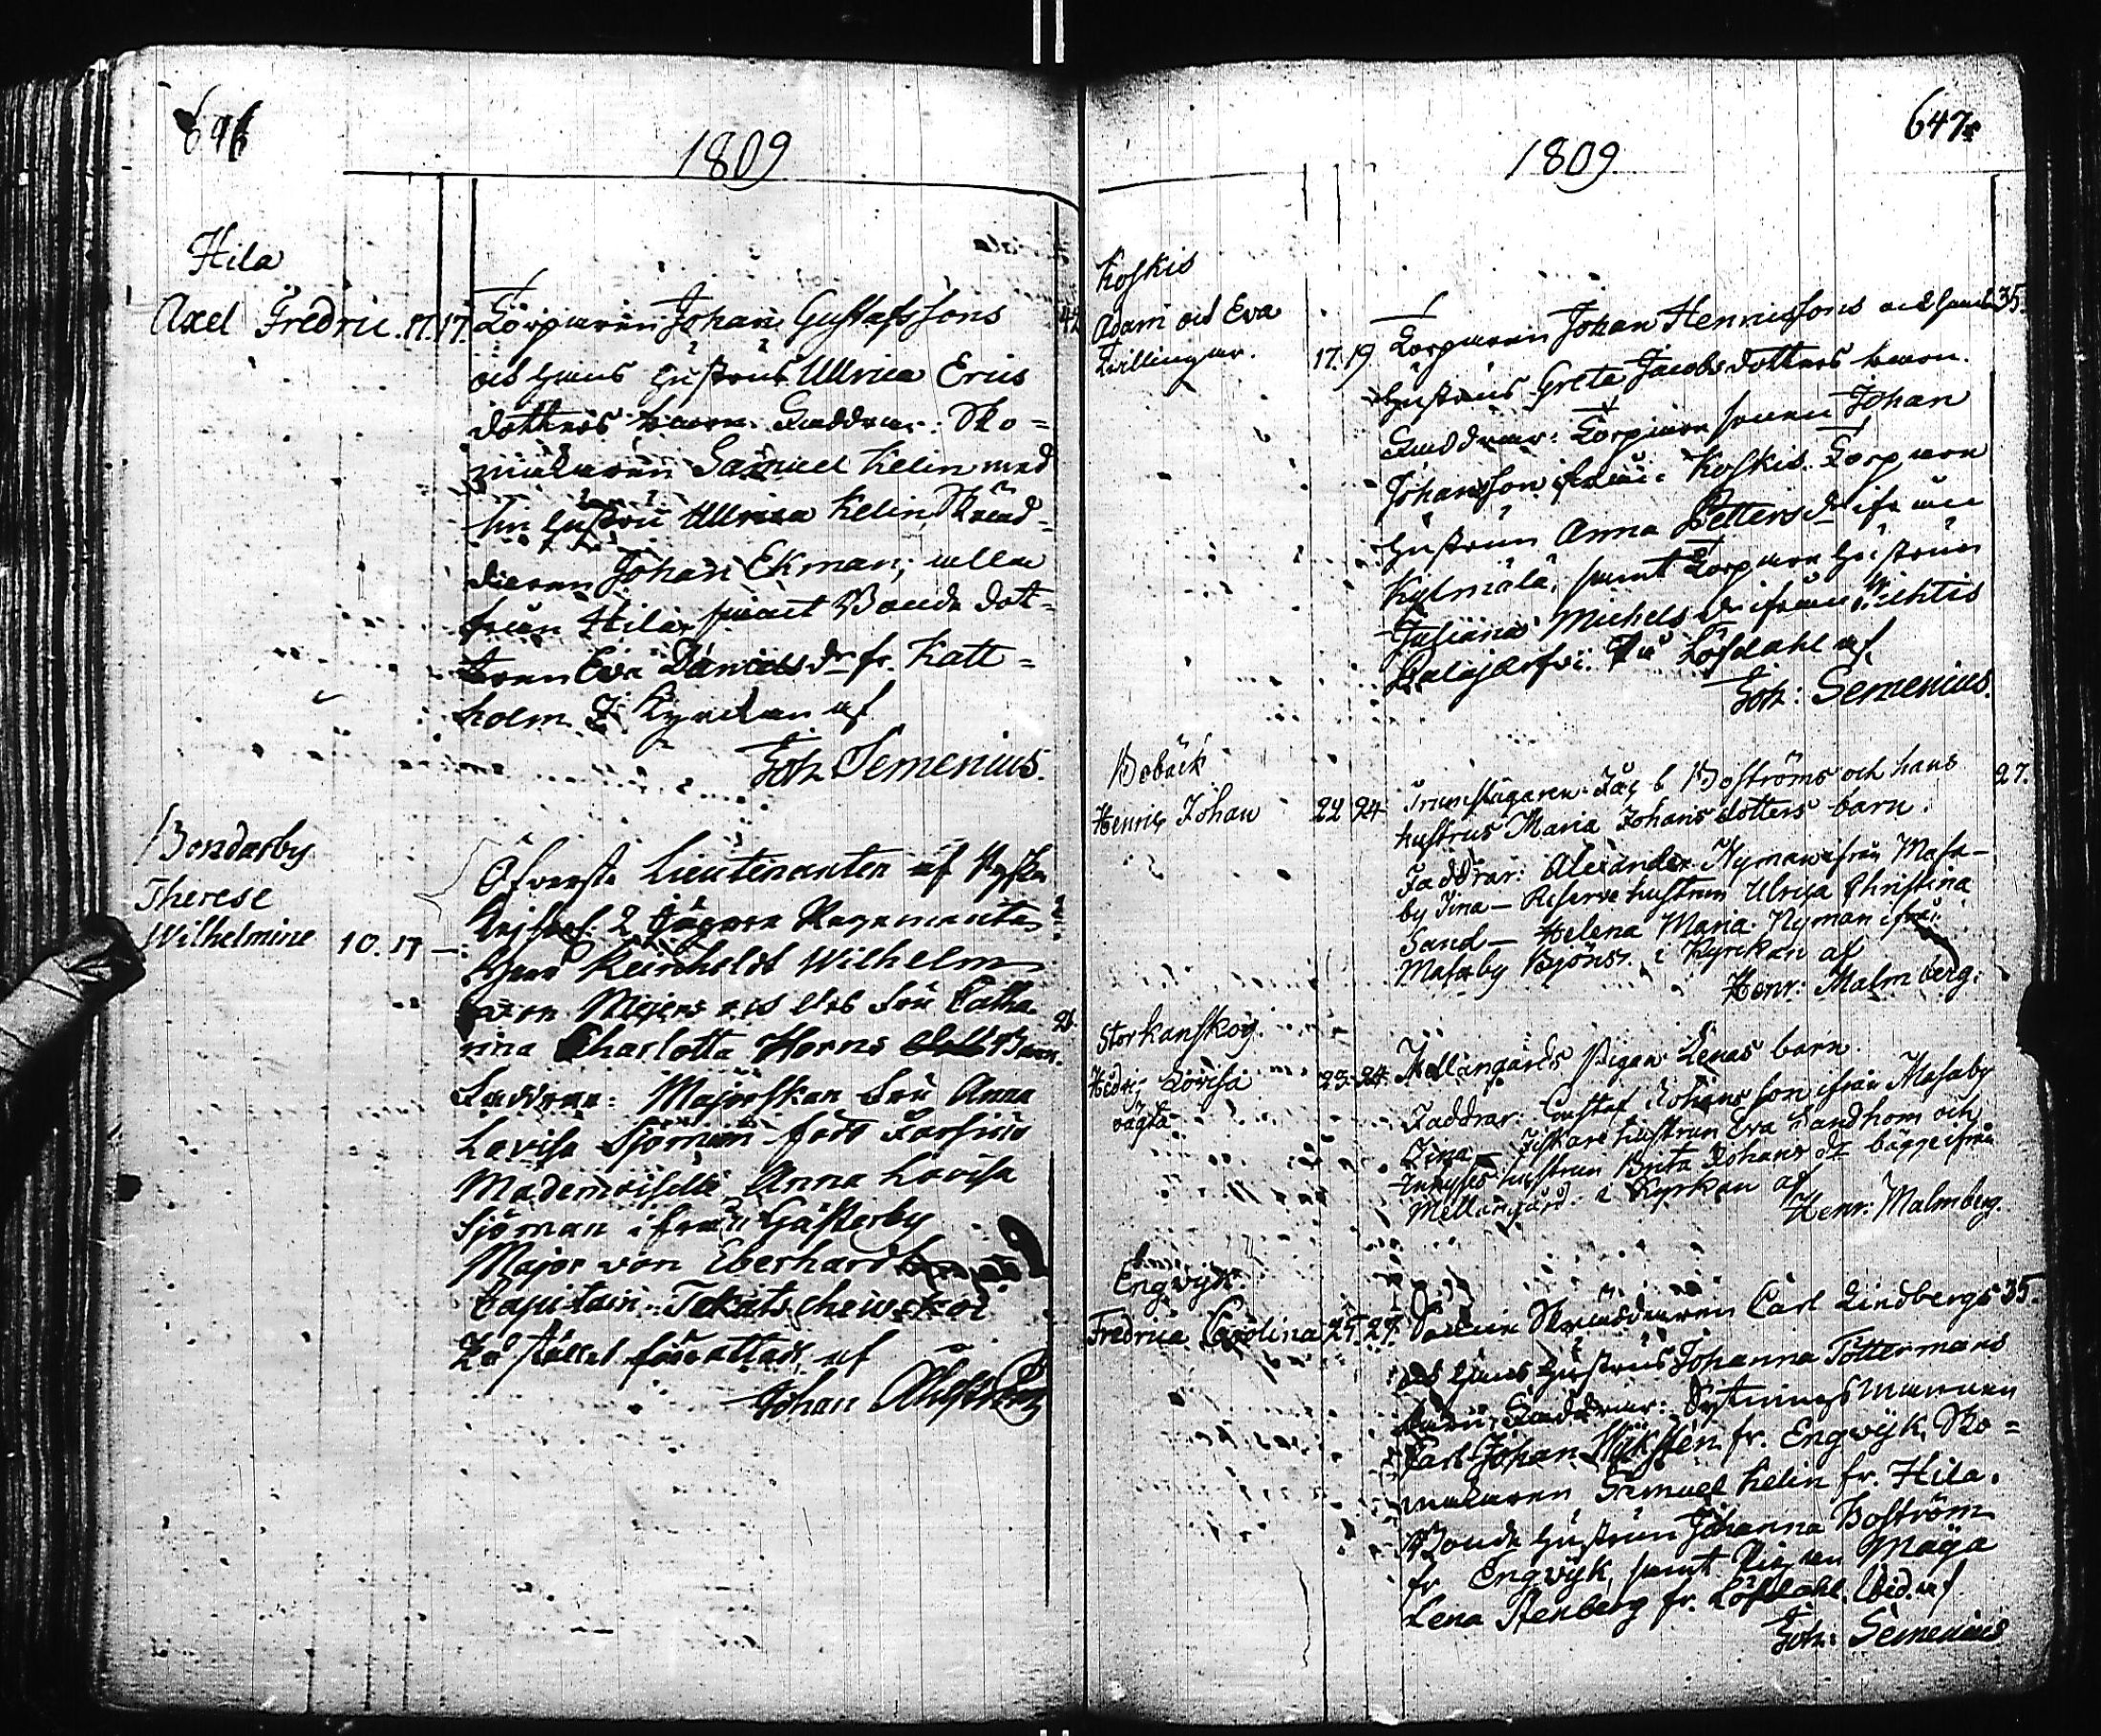 646
1809
Hila
Axel Fredric. 17. 17. Torparen Johan Gustafssons 42
och hans hustrus Ullrica Erics
dotters barn. Faddrar: Sko=
makaren Samuel Kelin med
sin hustru Ullrica Kelin, Skräd=
daren Johan Ekman, alla
från Hila, samt Bonde dot=
tren Eva Daniels dr fr. Katt=
holm. I Kyrckan af
Joh. Semenius.
Bondarby
Therese
Wilhelmine 10. 17 —
Öfverste Lieutenanten af Ryska
Kejserl. 2 Jägare Regementet
Herr Reinholdt Wilhelm
von Mejers och dess Fru Catha-
rina Charlotta Horns Barn. 26
Faddrar: Majorskan Fru Anna
Lovisa Sjöman född
Mademoiselle Anna Lovisa
Sjöman ifrån Gästerby
Major von Eberhard
Capitain
På stället förrättadt af
Johan
647
1809
Koskis
Adam och Eva
Tvillingar. 17. 19. Torparen Johan Henricssons och hans 35.
hustrus Greta Jacobs dotters barn.
Faddrar: Torpare sonen Johan
Johansson från Koskis. Torpare
hustrun Anna Petters dr ifrån
Kylmälä, samt Torpare hustrun
Juliana Michels dr ifrån Wichtis
Palajärfvi. På Löfdahl af
Joh: Semenius.
Bobäck
Henric Johan 22 24 Jac b Boströms och hans 27.
hustrus Maria Johans dotters barn.
Faddrar: Alexander Nyman ifrån Masa-
by Jina — Reserve hustrun Ulrica Christina
Sand — Helena Maria Nyman ifrån
Masaby Björns. i Kyrkan af
Henr: Malmberg.
Storkanskog.
Hedvig Lovisa 23. 24. Mellangårds Pigan Lenas barn.
oägta
Faddrar: Gustaf Johansson ifrån Masaby
Jina — Fiskare hustrun Eva Sandhom och
Inhyses hustrun Brita Johans dr bägge ifrån
Mellangård. i Kyrkan af
Henr: Malmberg.
Engvijk
Fredrica Carolina 25. 27. Skräddaren Carl Lindbergs 35.
och hans hustrus Johanna Töttermans
barn, Faddrar: Sytningsmannen
Carl Johan Wijksten fr. Engvijk, Sko=
makaren Samuel Kelin fr. Hila.
Bonde hustrun Johanna Boström
fr. Engvijk, samt Pigan Maja
Lena Stenberg fr. Löfdahl. ibid. af
Joh: Semenius